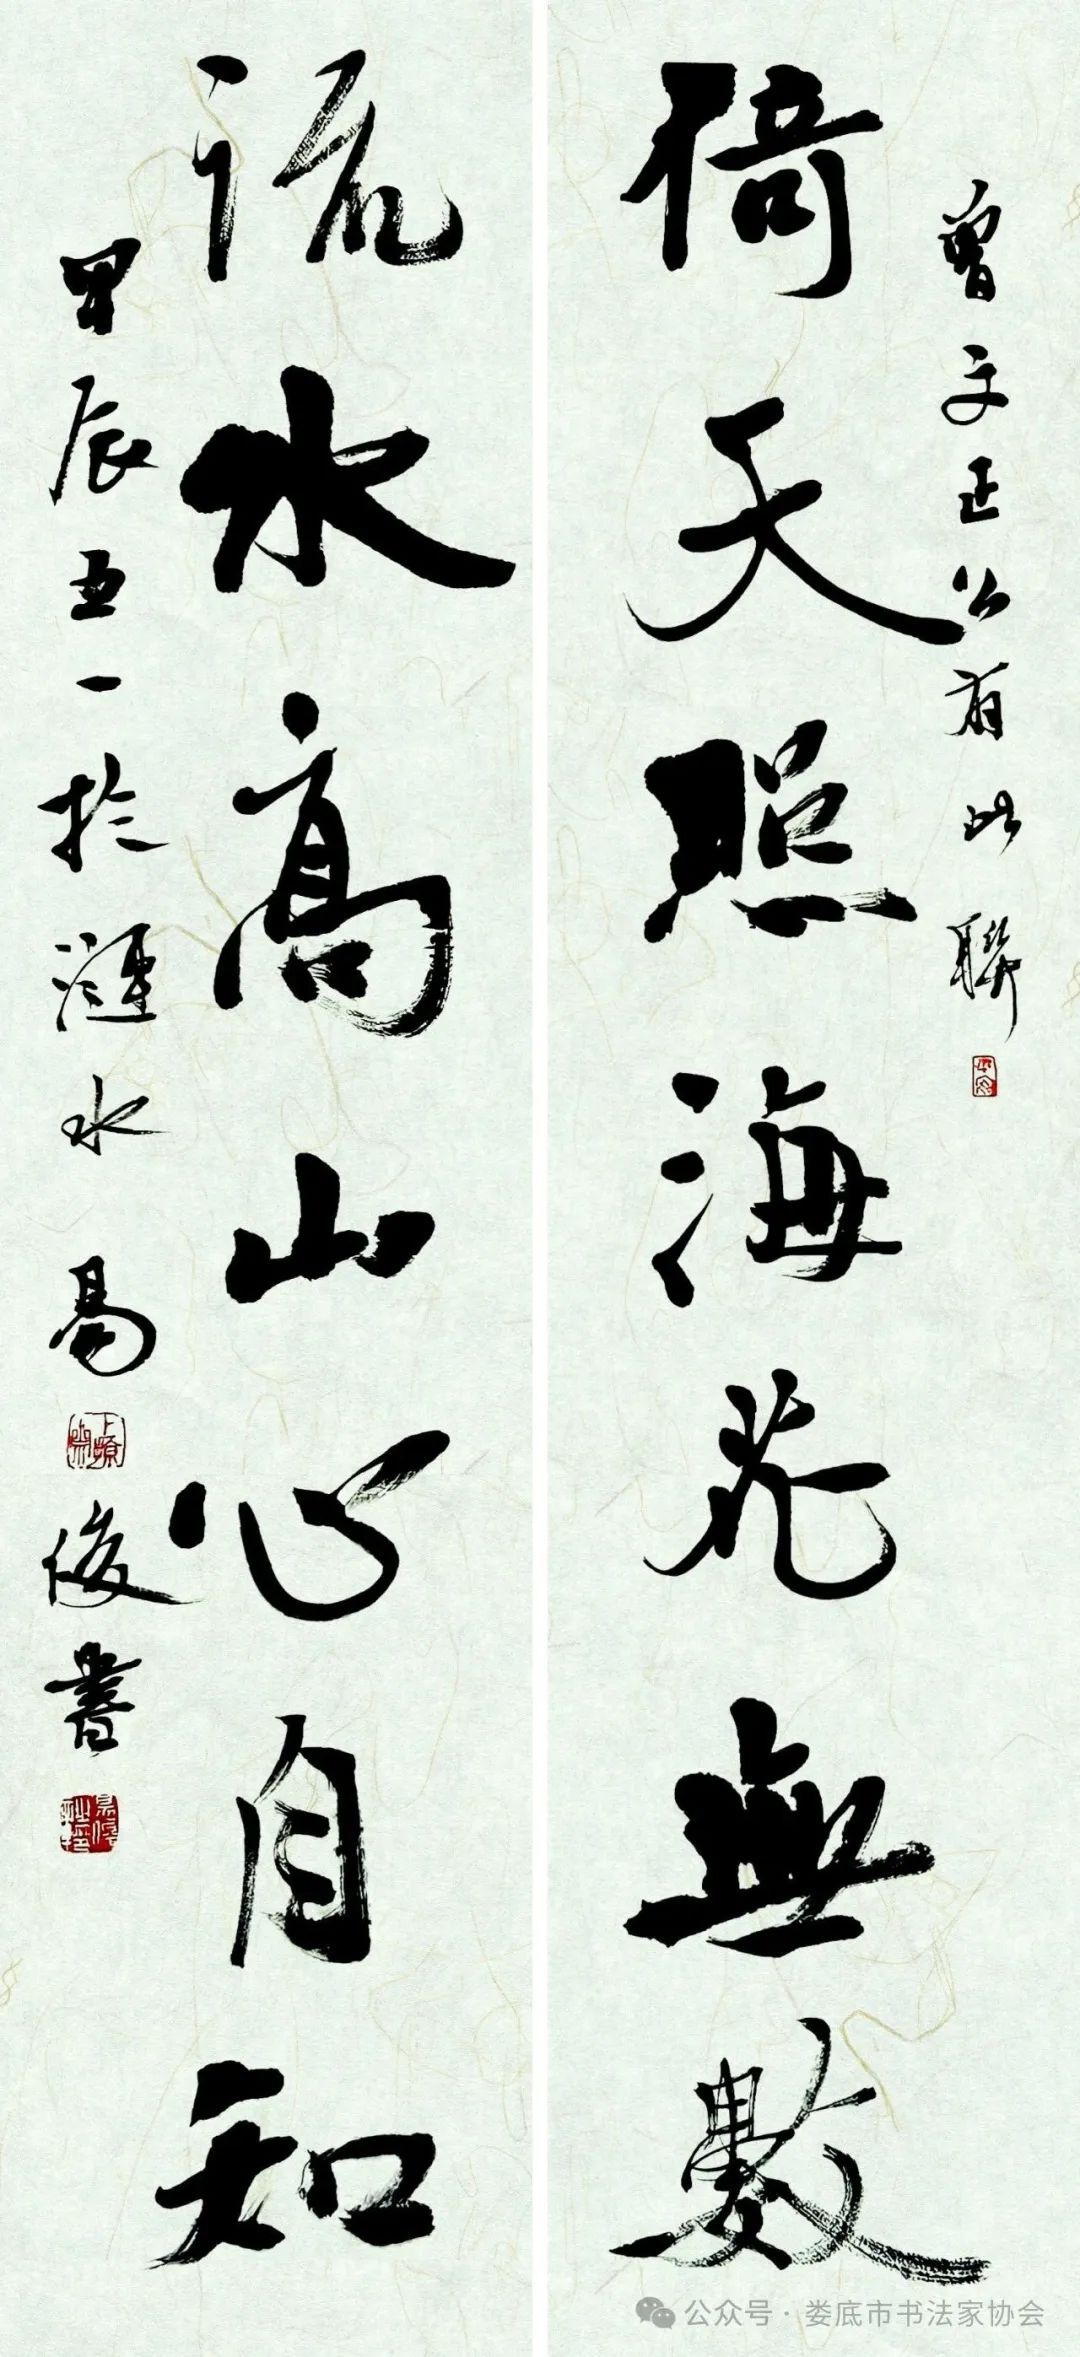 曾文正公有此聯
倚天照海花無數
流水高山心自知
甲辰五一於漣水易俊書
公众号·娄底市书法家协会